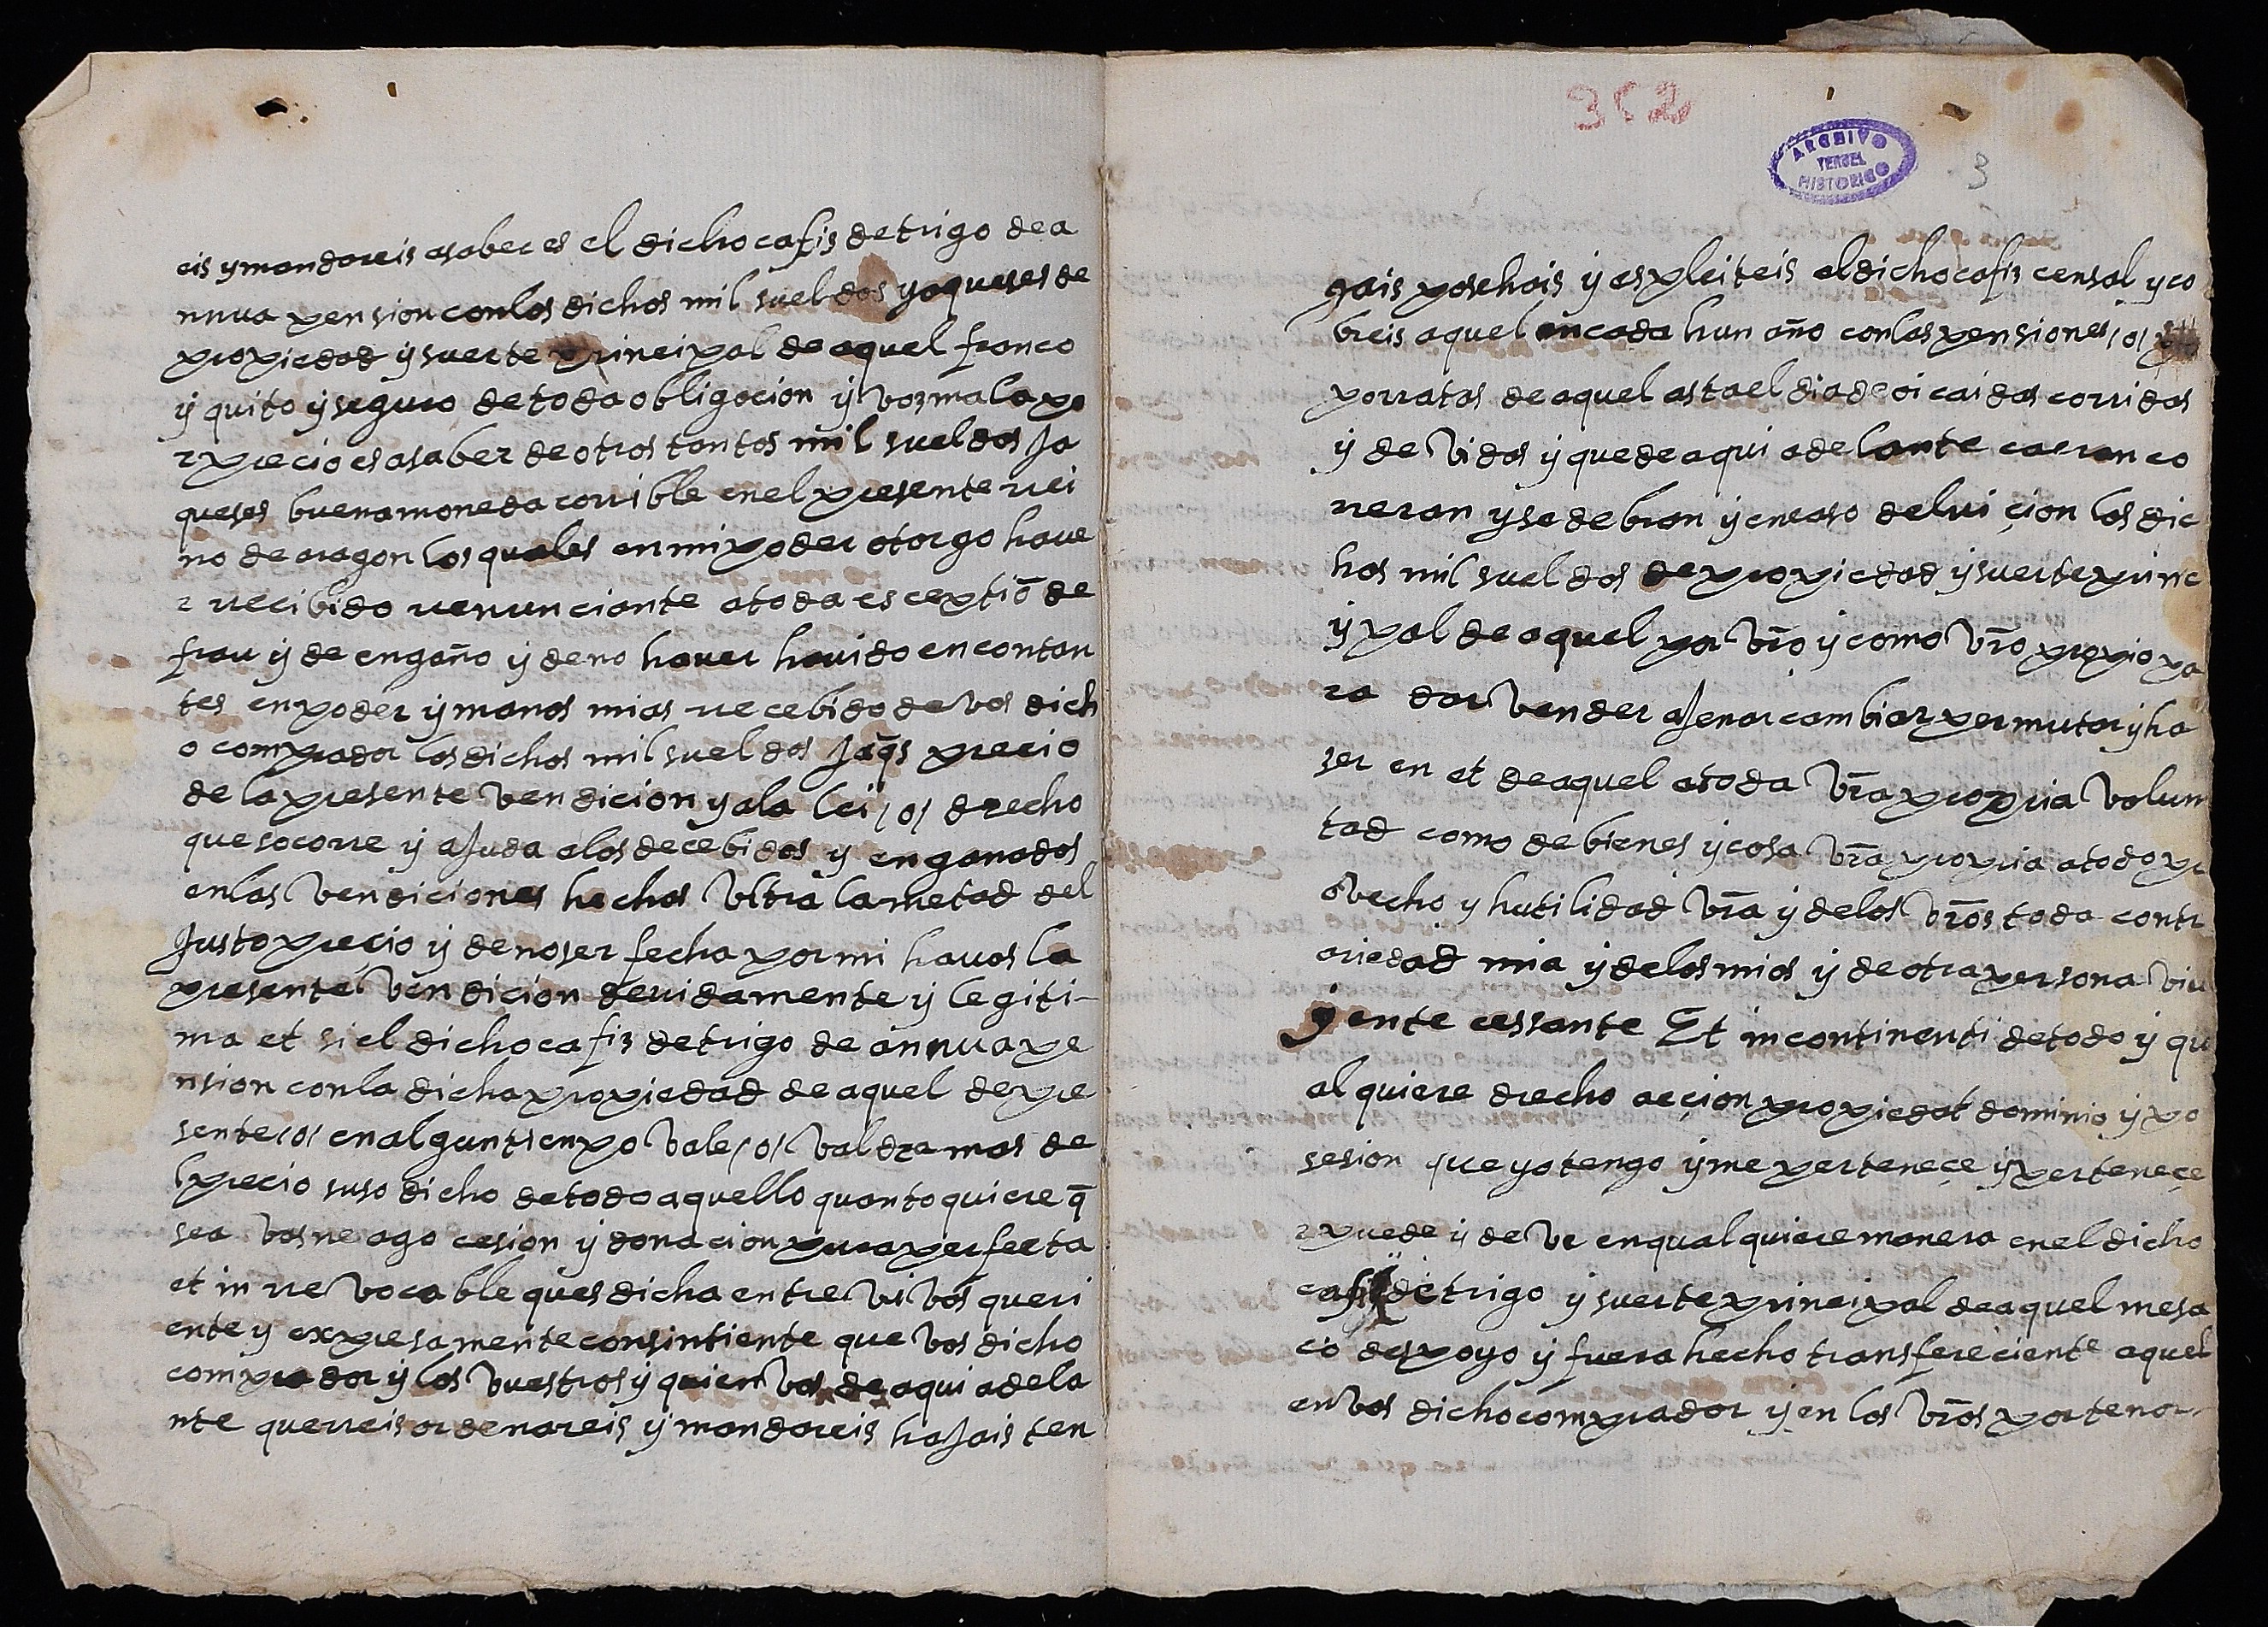 eis y mandareis asaber es el dicho cafiz de trigo de a
nnua pension con los dichos mil sueldos yaqueses de
propiedad y suerte principal de aquel franco
y quito y seguro de toda obligacion y voz mala po
r precio es asaber de otros tantos mil sueldos Ja
queses buena moneda corrible en el presente rei
no de aragon los quales en mi poder otorgo have
r recibido renunciante a toda escepтiō de
frau y de engaño y de no haver havido en contan
tes en poder y manos mias recebido de vos dich
o comprador los dichos mil sueldos Jaq̄s precio
de la presente vendicion y a la lei /o/ drecho
que socorre y aJuda a los decebidos y enganados
en las vendiciones hechas ultra la metad del
Justo precio y de no ser fecha por mi havos la
presente vendicion devidamente y legiti-
ma et si el dicho cafiz de trigo de annua pe
nsion con la dicha propiedad de aquel de pre
sente /o/ en algun tienpo vale /o/ valdra mas de
l precio suso dicho de todo aquello quanto quiere q̄
sea vos ne ago cesion y donacion pura perfecta
et in revocable ques dicha entre vivos queri
ente y expresamente consintiente que vos dicho
comprador y los vuestros y quien vos de aqui adela
nte querreis ordenareis y mandareis haJais ten
352
ARCHIVO
TERUEL
HISTORICO
3
gais posehais y espleiteis el dicho cafiz censal y co
breis aquel en cada hun año con las pensiones /o/
porratas de aquel asta el dia de oi caidas corridas
y devidas y que de aqui adelante caeran co
rreran y se debran y en caso de luicion los dic
hos mil sueldos de propiedad y suerte princ
ypal de aquel por vr̄o y como vr̄o propio pa
ra dar vender aJenar cambiar permutar y ha
ser en et de aquel a toda vr̄a propria volun
tad como de bienes y cosa vr̄a propria a todo pr
ovecho y hutilidad vr̄a y de los vr̄os toda contr
ariedad mia y de los mios y de otra persona viv
yente cessante Et incontinenti de todo y qu
al quiere drecho acçion propiedat dominio y po
sesion que yo tengo y me perteneçe y perteneçe
r puede y deve en qual quiere manera en el dicho
cafiz de trigo y suerte principal de aquel me sa
co despoyo y fuera hecho transfereciente aquel
en vos dicho comprador y en los vr̄os por tenor